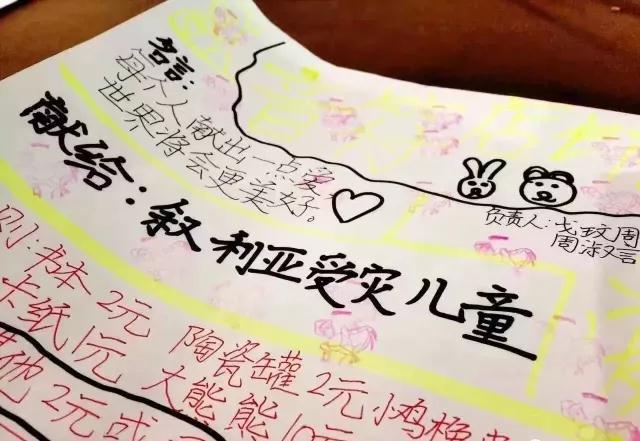 名言:
每个人献出一点爱
世界将会更美好。
献给:叙利亚受灾儿童
负责人:戈玟周
周淑言
则:书本2元 陶瓷罐2元
卡纸1元 大熊熊10元
其他2元或